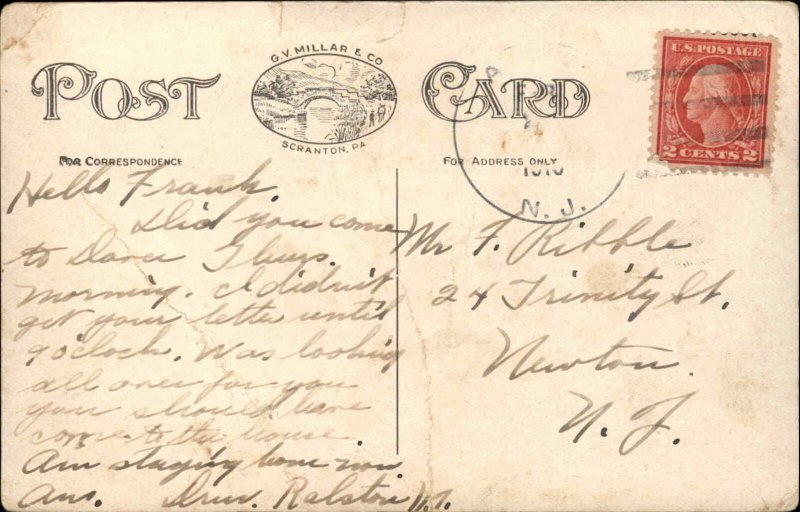 G.V. MILLAR & CO
POST CARD
SCRANTON, PA
FOR CORRESPONDENCE
FOR ADDRESS ONLY
U.S. POSTAGE
2 CENTS 2
N. J.
Hello Frank.
Did you come
to Dover Thurs.
morning. I didn't
get your letter until
9 o'clock. Was looking
all over for you
you should have
come to the house
Am staying home now.
Ans. Ralston N.J.
Mr F. Ribble
24 Trinity St.
Newton
N. J.